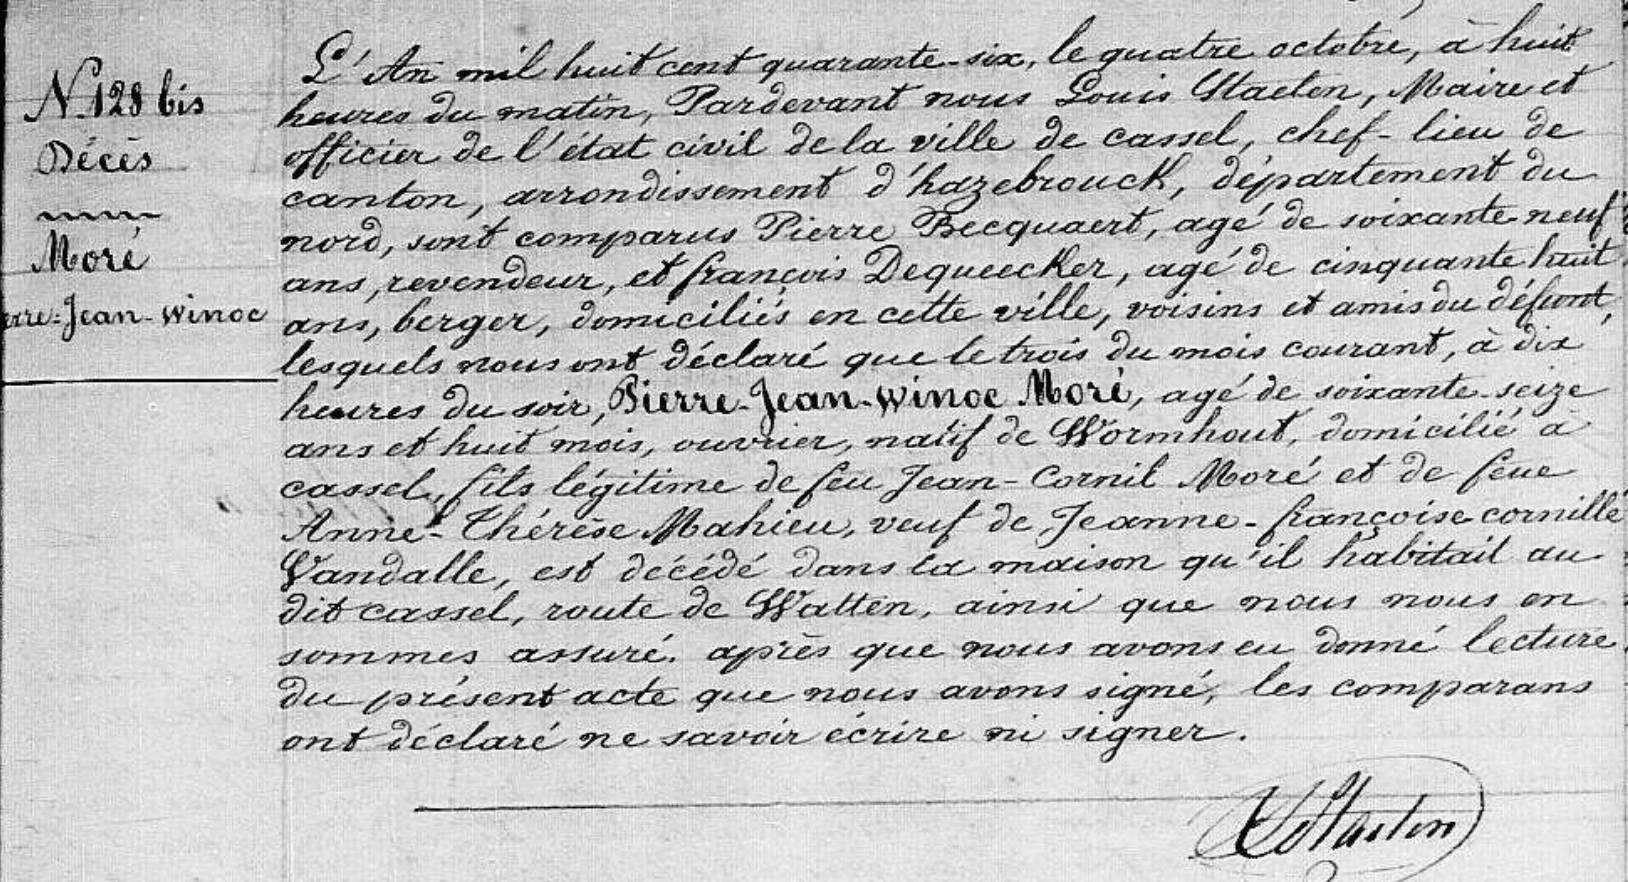 N. 128 bis
Décès
Moré
erre-Jean-Winoc
L'An mil huit cent quarante-six, le quatre octobre, à huit
heures du matin, Pardevant nous Louis Staelen, Maire et
officier de l'état civil de la ville de cassel, chef-lieu de
canton, arrondissement d'hazebrouck, département du
nord, sont comparus Pierre Becquaert, agé de soixante-neuf
ans, revendeur, et françois Dequeecker, agé de cinquante huit
ans, berger, domiciliés en cette ville, voisins et amis du défunt,
lesquels nous ont déclaré que le trois du mois courant, à dix
heures du soir, Pierre-Jean-Winoc Moré, agé de soixante-seize
ans et huit mois, ouvrier, natif de Wormhout, domicilié à
cassel, fils légitime de feu Jean-Cornil Moré et de feue
Anne-Thérèse Mahieu, veuf de Jeanne-françoise-cornille
Vandalle, est décédé dans la maison qu'il habitait au
dit cassel, route de Watten, ainsi que nous nous en
sommes assuré. après que nous avons eu donné lecture
du présent acte que nous avons signé, les comparans
ont déclaré ne savoir écrire ni signer.